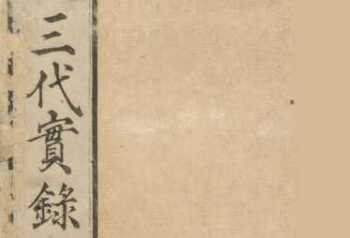 三代實錄